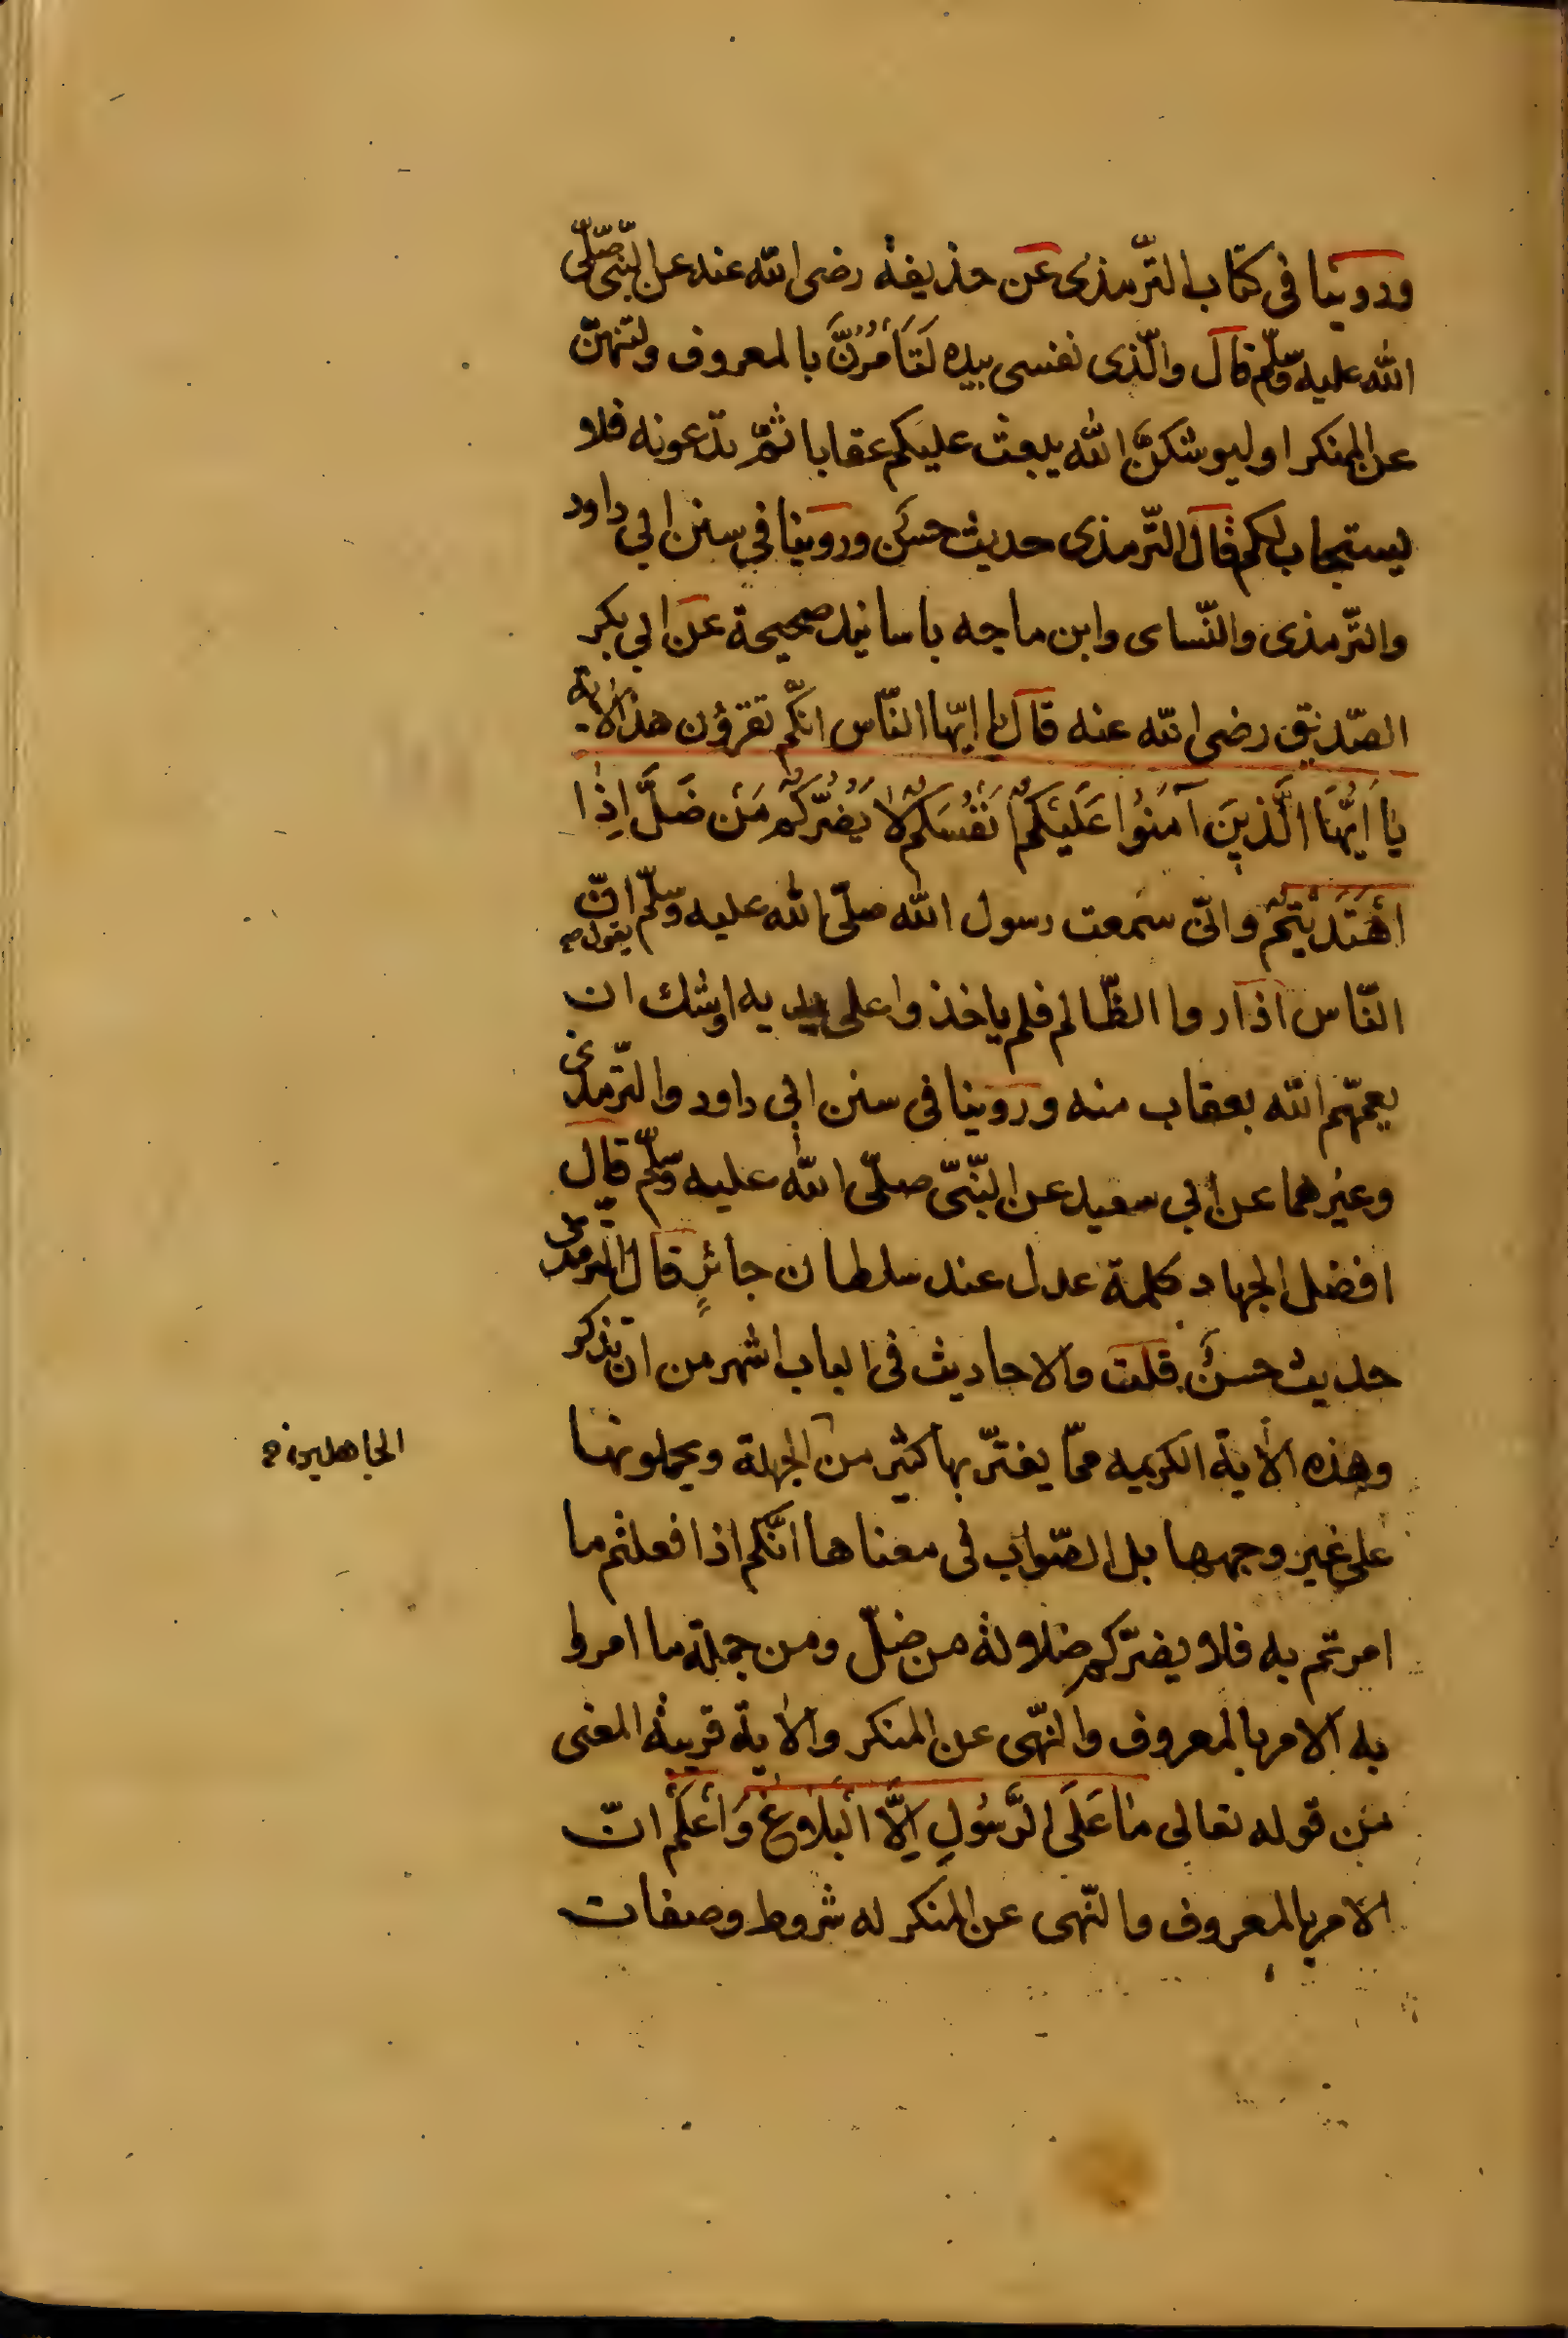 وروينا فى كتاب الترّمذى عن حذيفة رضى الله عنه عن النّبىّ صلّى
الله عليه وسلّم قال والّذى نفسى بيده لَتَأمُرُنَّ بالمعروف ولتنهنّ
عن المنكر او ليوشكنَّ الله يبعث عليكم عقابا ثمّ تدعونه فلا
يستجاب لكم قال الترّمذى حديث حسن وروينا في سنن ابي داود
والترّمذى والنّساى وابن ماجه باسانيد صحيحة عن ابي بكر
الصّديق رضى الله عنه قال يا ايّها النّاس انكّم تقرؤن هذه الاية
يا اَيُّهَا الَّذينَ آمَنُوا عَلَيْكُمْ اَنْفُسَكُمْ لا يَضُرُّكُمْ مَنْ ضَلَّ اِذا
اهْتَدَيْتُمْ وانّى سمعت رسول الله صلّى الله عليه وسلّم يقول انّ
النّاس اذا روا الظّالم فلم ياخذوا على يديه اوشك ان
يعمّهم الله بعقاب منه وروينا فى سنن ابي داود والترّمذى
وغيرهما عن ابي سعيد عن النّبّى صلّى الله عليه وسلّم قال
افضل الجهاد كلمة عدل عند سلطان جائرٍ قال الترمذى
حديث حسنٌ قلت والاحاديث فى الباب اشهر من ان تذكر
وهذه الاية الكريمه ممّا يغترّ بها كثير من الجهلة ويحملونها
الجاهلين
على غير وجهها بل الصّواب فى معناها انّكم اذا فعلتم ما
امرتم به فلا يضرّكم ضلالة من ضلّ ومن جملة ما امروا
به الامر بالمعروف والنّهى عن المنكر والاية قريبة المعنى
من قوله تعالى ما عَلَى الرَّسُولِ اِلَّا البَلاغُ وَاعلَم انّ
الامر بالمعروف والنّهى عن المنكر له شروط وصفات